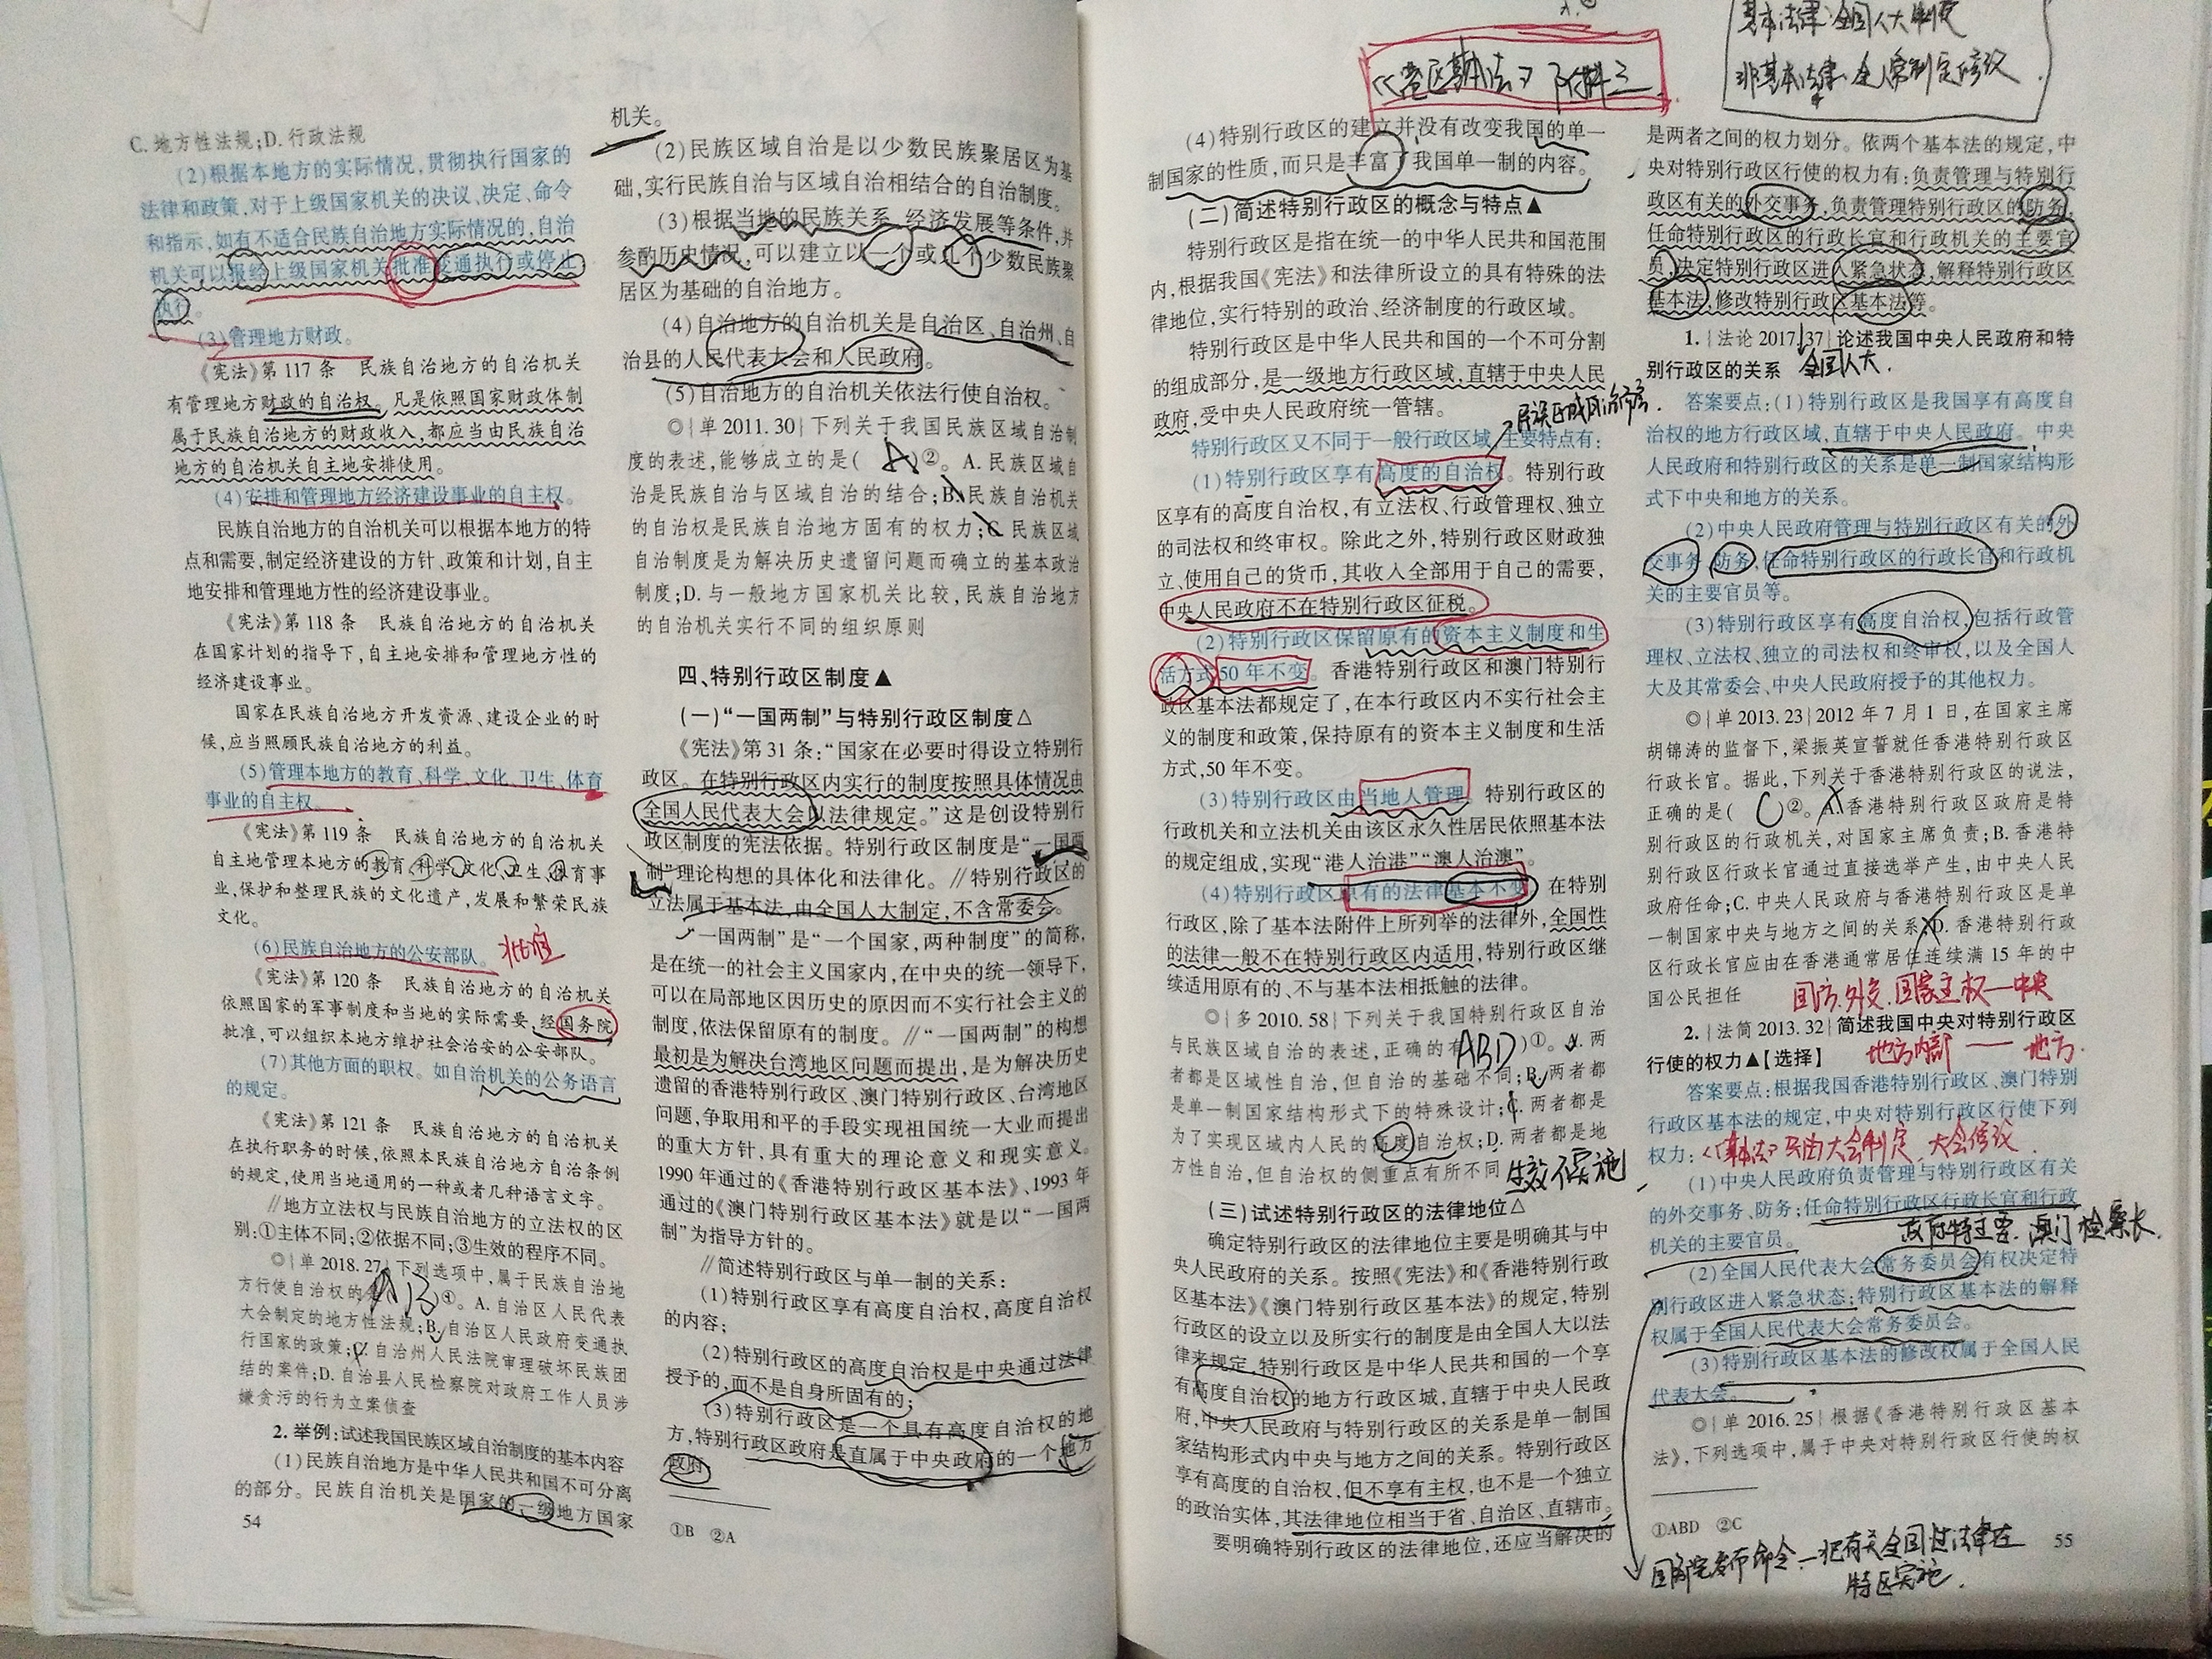 C. 地方性法规;D. 行政法规
(2)根据本地方的实际情况,贯彻执行国家的
法律和政策,对于上级国家机关的决议、决定、命令
和指示,如有不适合民族自治地方实际情况的,自治
机关可以报经上级国家机关批准变通执行或停止
执行。
(3)管理地方财政。
《宪法》第 117 条 民族自治地方的自治机关
有管理地方财政的自治权。凡是依照国家财政体制
属于民族自治地方的财政收入,都应当由民族自治
地方的自治机关自主地安排使用。
(4)安排和管理地方经济建设事业的自主权。
民族自治地方的自治机关可以根据本地方的特
点和需要,制定经济建设的方针、政策和计划,自主
地安排和管理地方性的经济建设事业。
《宪法》第 118 条 民族自治地方的自治机关
在国家计划的指导下,自主地安排和管理地方性的
经济建设事业。
国家在民族自治地方开发资源、建设企业的时
候,应当照顾民族自治地方的利益。
(5)管理本地方的教育、科学、文化、卫生、体育
事业的自主权。
《宪法》第 119 条 民族自治地方的自治机关
自主地管理本地方的教育、科学、文化、卫生、体育事
业,保护和整理民族的文化遗产,发展和繁荣民族
文化。
(6)民族自治地方的公安部队。 批准
《宪法》第 120 条 民族自治地方的自治机关
依照国家的军事制度和当地的实际需要,经国务院
批准,可以组织本地方维护社会治安的公安部队。
(7)其他方面的职权。如自治机关的公务语言
的规定。
《宪法》第 121 条 民族自治地方的自治机关
在执行职务的时候,依照本民族自治地方自治条例
的规定,使用当地通用的一种或者几种语言文字。
//地方立法权与民族自治地方的立法权的区
别:①主体不同;②依据不同;③生效的程序不同。
◎|单 2018. 27|下列选项中,属于民族自治地
方行使自治权的 AB )①。A. 自治区人民代表
大会制定的地方性法规;B. 自治区人民政府变通执
行国家的政策;C. 自治州人民法院审理破坏民族团
结的案件;D. 自治县人民检察院对政府工作人员涉
嫌贪污的行为立案侦查
2. 举例:试述我国民族区域自治制度的基本内容
(1)民族自治地方是中华人民共和国不可分离
的部分。民族自治机关是国家的一级地方国家
54
机关。
(2)民族区域自治是以少数民族聚居区为基
础,实行民族自治与区域自治相结合的自治制度。
(3)根据当地的民族关系、经济发展等条件,并
参酌历史情况,可以建立以一个或几个少数民族聚
居区为基础的自治地方。
(4)自治地方的自治机关是自治区、自治州、自
治县的人民代表大会和人民政府。
(5)自治地方的自治机关依法行使自治权。
◎|单 2011. 30|下列关于我国民族区域自治制
度的表述,能够成立的是( A )②。A. 民族区域自
治是民族自治与区域自治的结合;B. 民族自治机关
的自治权是民族自治地方固有的权力;C. 民族区域
自治制度是为解决历史遗留问题而确立的基本政治
制度;D. 与一般地方国家机关比较,民族自治地方
的自治机关实行不同的组织原则
四、特别行政区制度▲
(一)“一国两制”与特别行政区制度△
《宪法》第 31 条:“国家在必要时得设立特别行
政区。在特别行政区内实行的制度按照具体情况由
全国人民代表大会以法律规定。”这是创设特别行
政区制度的宪法依据。特别行政区制度是“一国两
制”理论构想的具体化和法律化。//特别行政区的
立法属于基本法,由全国人大制定,不含常委会。
“一国两制”是“一个国家,两种制度”的简称,
是在统一的社会主义国家内,在中央的统一领导下,
可以在局部地区因历史的原因而不实行社会主义的
制度,依法保留原有的制度。//“一国两制”的构想
最初是为解决台湾地区问题而提出,是为解决历史
遗留的香港特别行政区、澳门特别行政区、台湾地区
问题,争取用和平的手段实现祖国统一大业而提出
的重大方针,具有重大的理论意义和现实意义。
1990 年通过的《香港特别行政区基本法》、1993 年
通过的《澳门特别行政区基本法》就是以“一国两
制”为指导方针的。
//简述特别行政区与单一制的关系:
(1)特别行政区享有高度自治权,高度自治权
的内容;
(2)特别行政区的高度自治权是中央通过法律
授予的,而不是自身所固有的;
(3)特别行政区是一个具有高度自治权的地
方,特别行政区政府是直属于中央政府的一个地方
政府
①B ②A
《港区基本法》附件三
(4)特别行政区的建立并没有改变我国的单一
制国家的性质,而只是丰富了我国单一制的内容。
(二)简述特别行政区的概念与特点▲
特别行政区是指在统一的中华人民共和国范围
内,根据我国《宪法》和法律所设立的具有特殊的法
律地位,实行特别的政治、经济制度的行政区域。
特别行政区是中华人民共和国的一个不可分割
的组成部分,是一级地方行政区域,直辖于中央人民
政府,受中央人民政府统一管辖。
特别行政区又不同于一般行政区域,主要特点有:
(1)特别行政区享有高度的自治权。特别行政
区享有的高度自治权,有立法权、行政管理权、独立
的司法权和终审权。除此之外,特别行政区财政独
立、使用自己的货币,其收入全部用于自己的需要,
中央人民政府不在特别行政区征税。
(2)特别行政区保留原有的资本主义制度和生
活方式 50 年不变。香港特别行政区和澳门特别行
政区基本法都规定了,在本行政区内不实行社会主
义的制度和政策,保持原有的资本主义制度和生活
方式,50 年不变。
(3)特别行政区由当地人管理。特别行政区的
行政机关和立法机关由该区永久性居民依照基本法
的规定组成,实现“港人治港”“澳人治澳”。
(4)特别行政区原有的法律基本不变。在特别
行政区,除了基本法附件上所列举的法律外,全国性
的法律一般不在特别行政区内适用,特别行政区继
续适用原有的、不与基本法相抵触的法律。
◎|多 2010. 58|下列关于我国特别行政区自治
与民族区域自治的表述,正确的有 ABD )①。A. 两
者都是区域性自治,但自治的基础不同;B. 两者都
是单一制国家结构形式下的特殊设计;C. 两者都是
为了实现区域内人民的高度自治权;D. 两者都是地
方性自治,但自治权的侧重点有所不同
(三)试述特别行政区的法律地位△
确定特别行政区的法律地位主要是明确其与中
央人民政府的关系。按照《宪法》和《香港特别行政
区基本法》《澳门特别行政区基本法》的规定,特别
行政区的设立以及所实行的制度是由全国人大以法
律来规定,特别行政区是中华人民共和国的一个享
有高度自治权的地方行政区域,直辖于中央人民政
府,中央人民政府与特别行政区的关系是单一制国
家结构形式内中央与地方之间的关系。特别行政区
享有高度的自治权,但不享有主权,也不是一个独立
的政治实体,其法律地位相当于省、自治区、直辖市。
要明确特别行政区的法律地位,还应当解决的
基本法律:全国人大制定
非基本法律:全人常制定修改
是两者之间的权力划分。依两个基本法的规定,中
央对特别行政区行使的权力有:负责管理与特别行
政区有关的外交事务,负责管理特别行政区的防务,
任命特别行政区的行政长官和行政机关的主要官
员,决定特别行政区进入紧急状态,解释特别行政区
基本法,修改特别行政区基本法等。
1. |法论 2017. 37|论述我国中央人民政府和特
别行政区的关系 全国人大.
答案要点:(1)特别行政区是我国享有高度自
治权的地方行政区域,直辖于中央人民政府。中央
人民政府和特别行政区的关系是单一制国家结构形
式下中央和地方的关系。
(2)中央人民政府管理与特别行政区有关的外
交事务、防务,任命特别行政区的行政长官和行政机
关的主要官员等。
(3)特别行政区享有高度自治权,包括行政管
理权、立法权、独立的司法权和终审权,以及全国人
大及其常委会、中央人民政府授予的其他权力。
◎|单 2013. 23|2012 年 7 月 1 日,在国家主席
胡锦涛的监督下,梁振英宣誓就任香港特别行政区
行政长官。据此,下列关于香港特别行政区的说法,
正确的是( C )②。A. 香港特别行政区政府是特
别行政区的行政机关,对国家主席负责;B. 香港特
别行政区行政长官通过直接选举产生,由中央人民
政府任命;C. 中央人民政府与香港特别行政区是单
一制国家中央与地方之间的关系;D. 香港特别行政
区行政长官应由在香港通常居住连续满 15 年的中
国公民担任
国防.外交.国家主权—中央
2. |法简 2013. 32|简述我国中央对特别行政区
行使的权力▲【选择】 地方内部 —— 地方.
答案要点:根据我国香港特别行政区、澳门特别
行政区基本法的规定,中央对特别行政区行使下列
权力:
(1)中央人民政府负责管理与特别行政区有关
的外交事务、防务;任命特别行政区行政长官和行政
机关的主要官员。
(2)全国人民代表大会常务委员会有权决定特
别行政区进入紧急状态;特别行政区基本法的解释
权属于全国人民代表大会常务委员会。
(3)特别行政区基本法的修改权属于全国人民
代表大会。
◎|单 2016. 25|根据《香港特别行政区基本
法》,下列选项中,属于中央对特别行政区行使的权
①ABD ②C
55
国务院发布命令一把有关全国性法律在
特区实施.